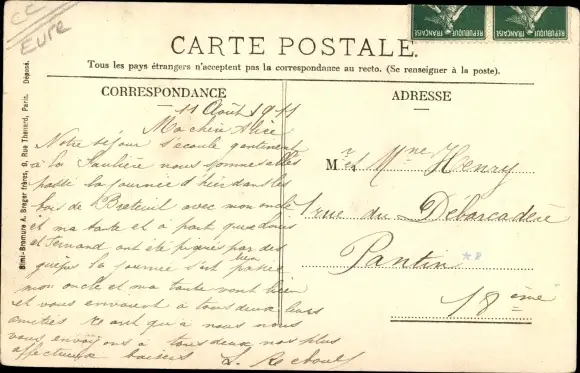 CC
Eure
REPUBLIQUE FRANÇAISE
REPUBLIQUE FRANÇAISE
CARTE POSTALE.
Tous les pays étrangers n'acceptent pas la correspondance au recto. (Se renseigner à la poste).
CORRESPONDANCE
11 Août 1911
Ma chère Alice
Notre séjour s'écoule gentiment
à la nous sommes allés
passé la journée d'hier dans les
bois de Breteuil avec mon oncle
et ma tante et à part que
et Fernand ont été piqués par des
guêpes la journée s'est bien passée
mon oncle et ma tante vont bien
et vous envoient à tous deux leurs
amitiés quant à nous nous
vous envoyons à tous deux nos plus
affectueux baisers
ADRESSE
Mr et Mme Henry
1 rue du Débarcadère
Pantin
18ème
Simi-Bromure A. Breger frères, 9, Rue Thénard, Paris. Déposé.